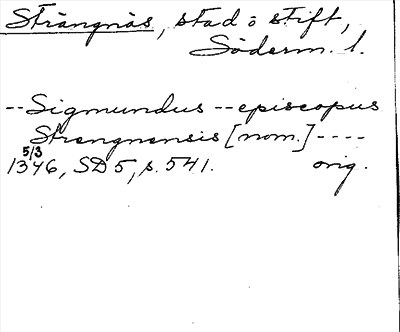 Strängnäs, stad o stift,
Söderm. l.
-- Sigmundus -- episcopus
Strengnensis [nom.] ----
5/3
1346, SD 5, s. 541. orig.